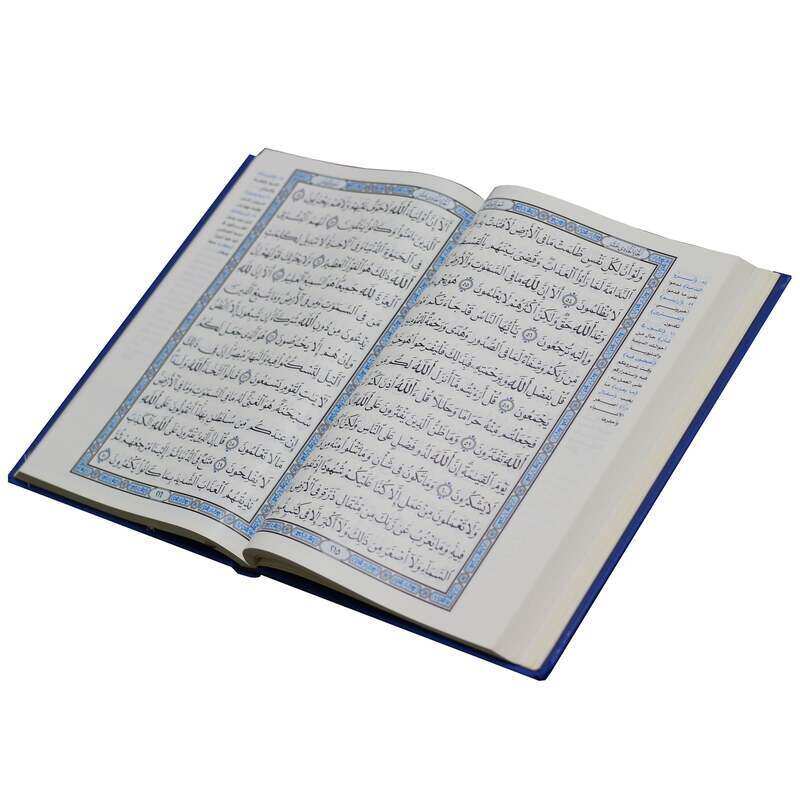 ولو أن لكل نفس ظلمت ما في الأرض لافتدت
الندامة لما رأوا العذاب وقضي بينهم بالقسط
لا يظلمون ٥٤ ألا إن لله ما في السموت والأرض
وعد الله حق ولكن أكثرهم لا يعلمون ٥٥ هو يحي
وإليه ترجعون ٥٦ يأيها الناس قد جاءتكم
من ربكم وشفاء لما في الصدور وهدى ورحمة للمؤمنين
قل بفضل الله وبرحمته فبذلك فليفرحوا هو
يجمعون ٥٨ قل أرءيتم ما أنزل الله لكم
فجعلتم منه حراما وحللا قل ءالله أذن لكم
الله تفترون ٥٩ وما ظن الذين يفترون على الله
يوم القيمة إن الله لذو فضل على الناس ولكن أكثرهم
لا يشكرون ٦٠ وما تكون في شأن وما تتلوا منه من
ولا تعملون من عمل إلا كنا عليكم شهودا إذ تفيضون
فيه وما يعزب عن ربك من مثقال ذرة في الأرض
السماء ولا أصغر من ذلك ولا أكبر إلا في كتب
٢١٥
ألا إن أولياء الله لا خوف عليهم ولا هم يحزنون ٦٢
الذين ءامنوا وكانوا يتقون ٦٣ لهم البشرى
في الحيوة الدنيا وفي الأخرة لا تبديل لكلمت
الله ذلك هو الفوز العظيم ٦٤ ولا يحزنك قولهم إن
العزة لله جميعا هو السميع العليم ٦٥ ألا إن لله
من في السموت ومن في الأرض وما يتبع الذين
يدعون من دون الله شركاء إن يتبعون إلا الظن
وإن هم إلا يخرصون ٦٦ هو الذي جعل لكم
اليل لتسكنوا فيه والنهار مبصرا إن في ذلك
لأيت لقوم يسمعون ٦٧ قالوا اتخذ الله ولدا
سبحنه هو الغني له ما في السموت وما في الأرض
إن عندكم من سلطن بهذا أتقولون على الله
ما لا تعلمون ٦٨ قل إن الذين يفترون على الله الكذب
لا يفلحون ٦٩ متع في الدنيا ثم إلينا مرجعهم ثم
نذيقهم العذاب الشديد بما كانوا يكفرون ٧٠
٢١٦